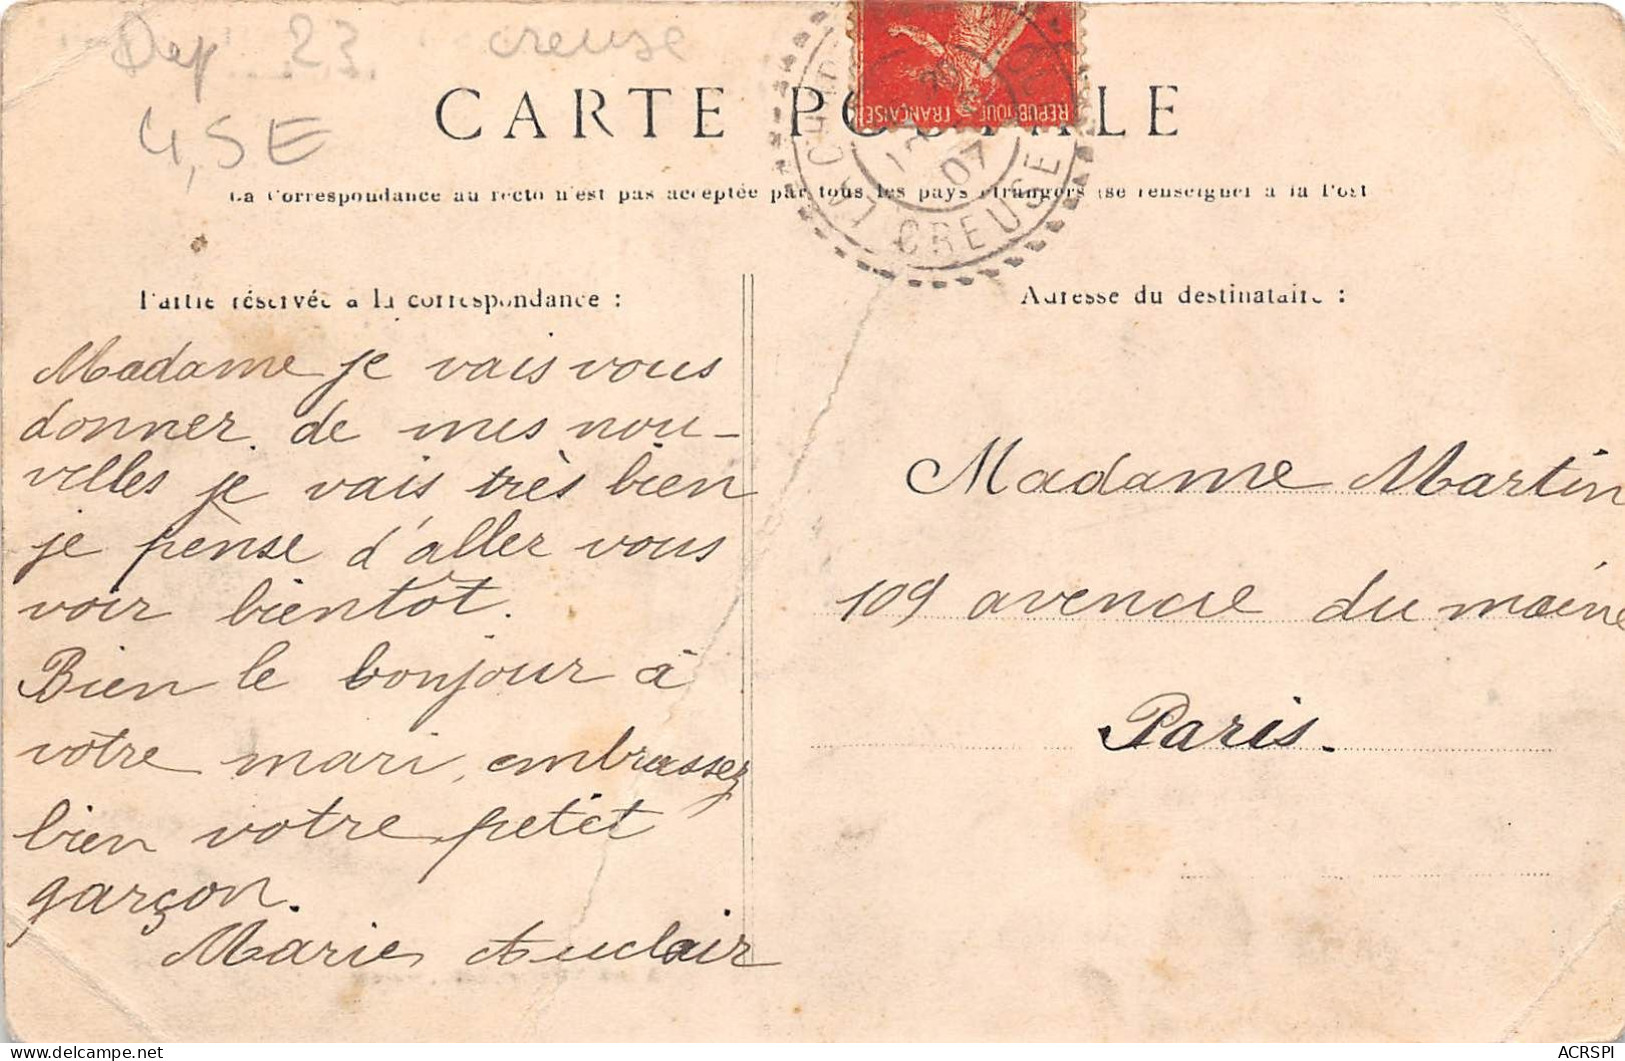 Dep 23 creuse
4,5E
CARTE POSTALE
REPUBLIQUE FRANÇAISE
07
CREUSE
La Correspondance au recto n'est pas acceptée par tous les pays étrangers (se renseigner à la Post
Partie réservée à la correspondance :
Madame je vais vous
donner de mes nou-
velles je vais très bien
je pense d'aller vous
voir bientôt.
Bien le bonjour à
votre mari, embrassez
bien votre petit
garçon.
Marie Auclair
Adresse du destinataire :
Madame Martin
109 avenue du maine
Paris.
ACRSPI